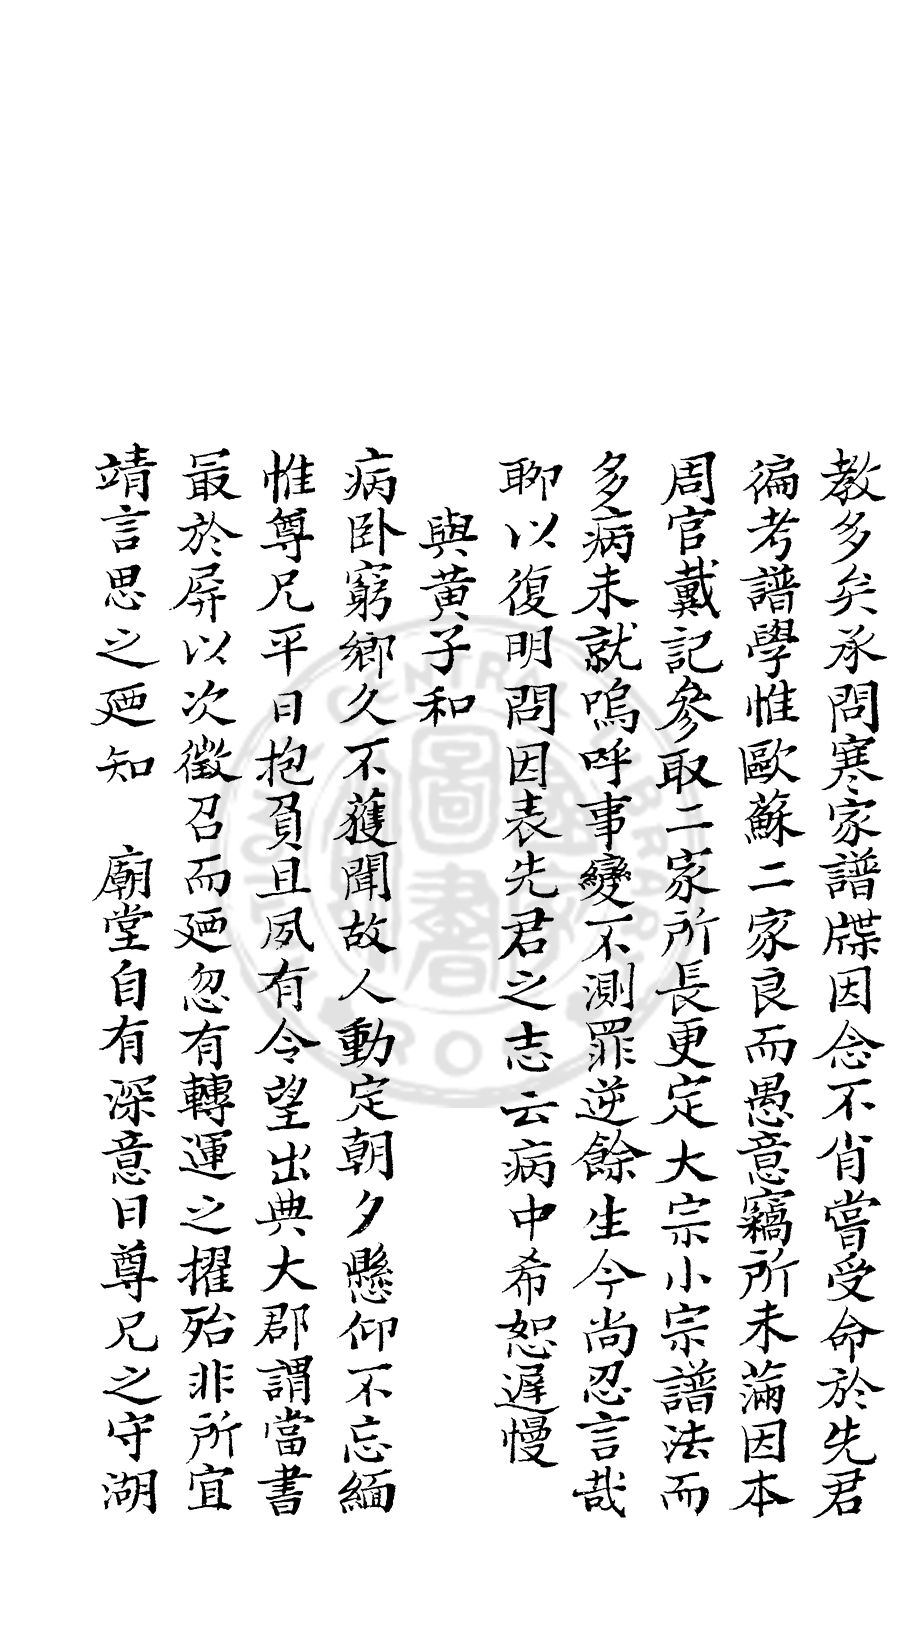 教多矣承問寒家譜牒因念不肖嘗受命於先君
徧考譜學惟歐蘇二家良而愚意竊所未滿因本
周官戴記參取二家所長更定大宗小宗譜法而
多病未就嗚呼事變不測罪逆餘生今尚忍言哉
聊以復明問因表先君之志云病中希恕遲慢
與黃子和
病卧窮鄉久不獲聞故人動定朝夕懸仰不忘緬
惟尊兄平日抱負且夙有令望出典大郡謂當書
最於屏以次徵召而廼忽有轉運之擢殆非所宜
靖言思之廼知 廟堂自有深意曰尊兄之守湖